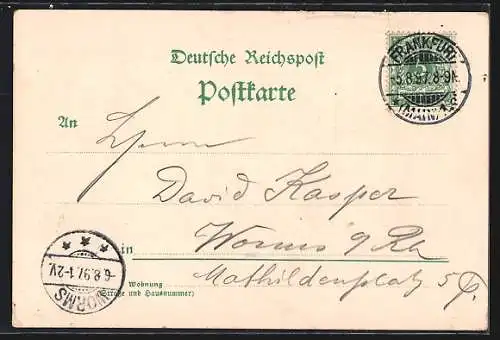 Deutsche Reichspost
Postkarte
FRANKFURT
-5.8.97.8-9N.
(MAIN)
An
Herrn
David Kasper
in Worms a/Rh
Wohnung
(Straße und Hausnummer)
Mathildenplatz 5
-6.8.97.1-2V.
WORMS